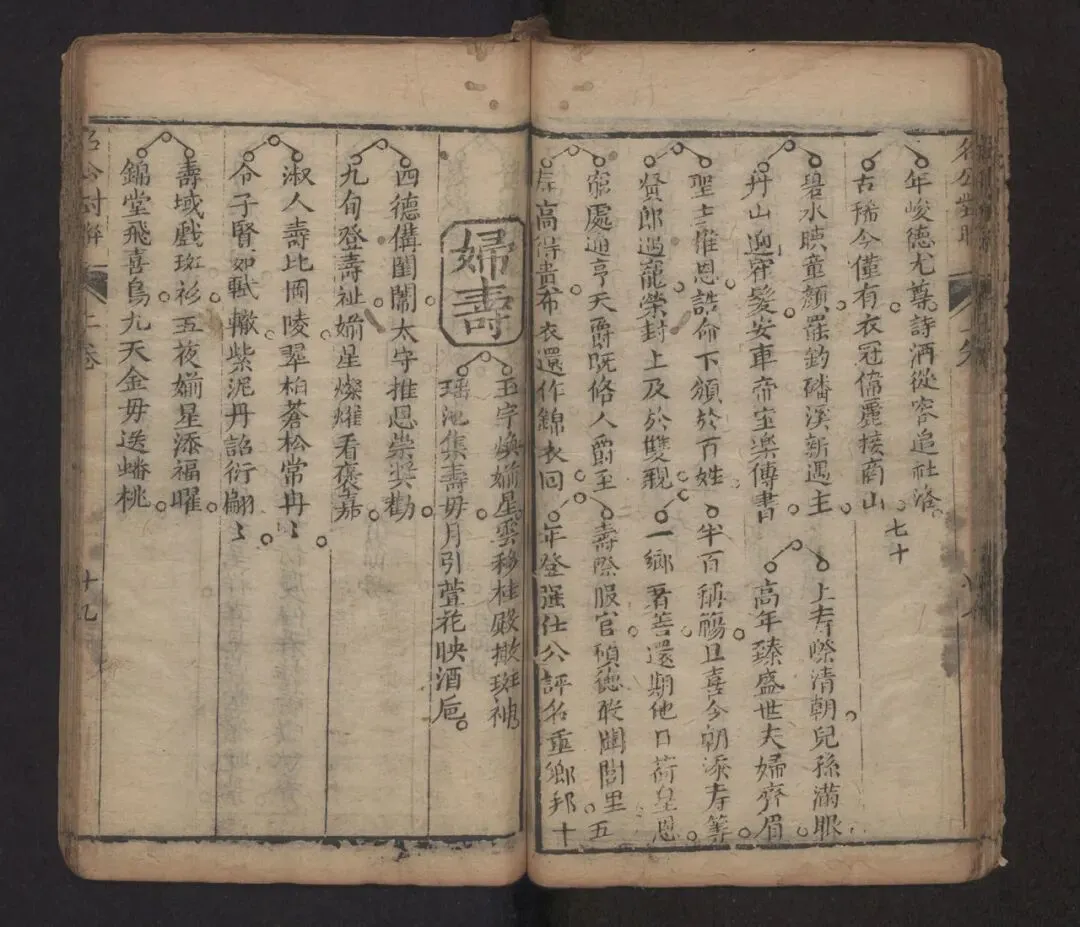 年峻德尤尊詩酒從容追社洛
古稀今僅有衣冠偉麗接商山
七十
碧水映童顏罷釣磻溪新遇主
丹山迎雀髮安車帝室樂傳書
上寿際清朝兒孫滿眼
高年臻盛世夫婦齊眉
聖主推恩誥命下頒於百姓
賢郎遇寵榮封上及於雙親
半百稱觴且喜今朝添寿筭
一鄉著善還期他日荷皇恩
窮處通亨天爵既脩人爵至
居高得貴布衣還作錦衣回
壽際服官碩德敢闔閭里五
年登强仕公評名重鄉邦十
婦壽
玉宇煥婺星雲移桂殿撒斑袖
瑤池集壽毋月引萱花映酒巵
四德備閨閫太守推恩崇奖勸
九旬登壽祉婺星燦耀看褒嘉
淑人壽比岡陵翠柏蒼松常冉〻
令子賢如軾轍紫泥丹詔衍翩〻
壽域戲斑衫五夜婺星添福曜
錦堂飛喜鳥九天金毋送蟠桃
名公對聯
上卷
十九